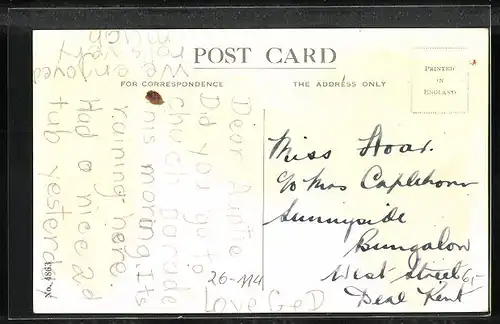 POST CARD
FOR CORRESPONDENCE
THE ADDRESS ONLY
PRINTED
IN
ENGLAND
Dear Auntie
Did you go to
church parade
this morning Its
raining here.
Had a nice 2d
tub yesterday
We enjoyed
much
Love
26-114
No. 4863
Miss Hoar.
c/o Mrs Caplehorn
Sunnyside
Bungalow
West Street
Deal Kent